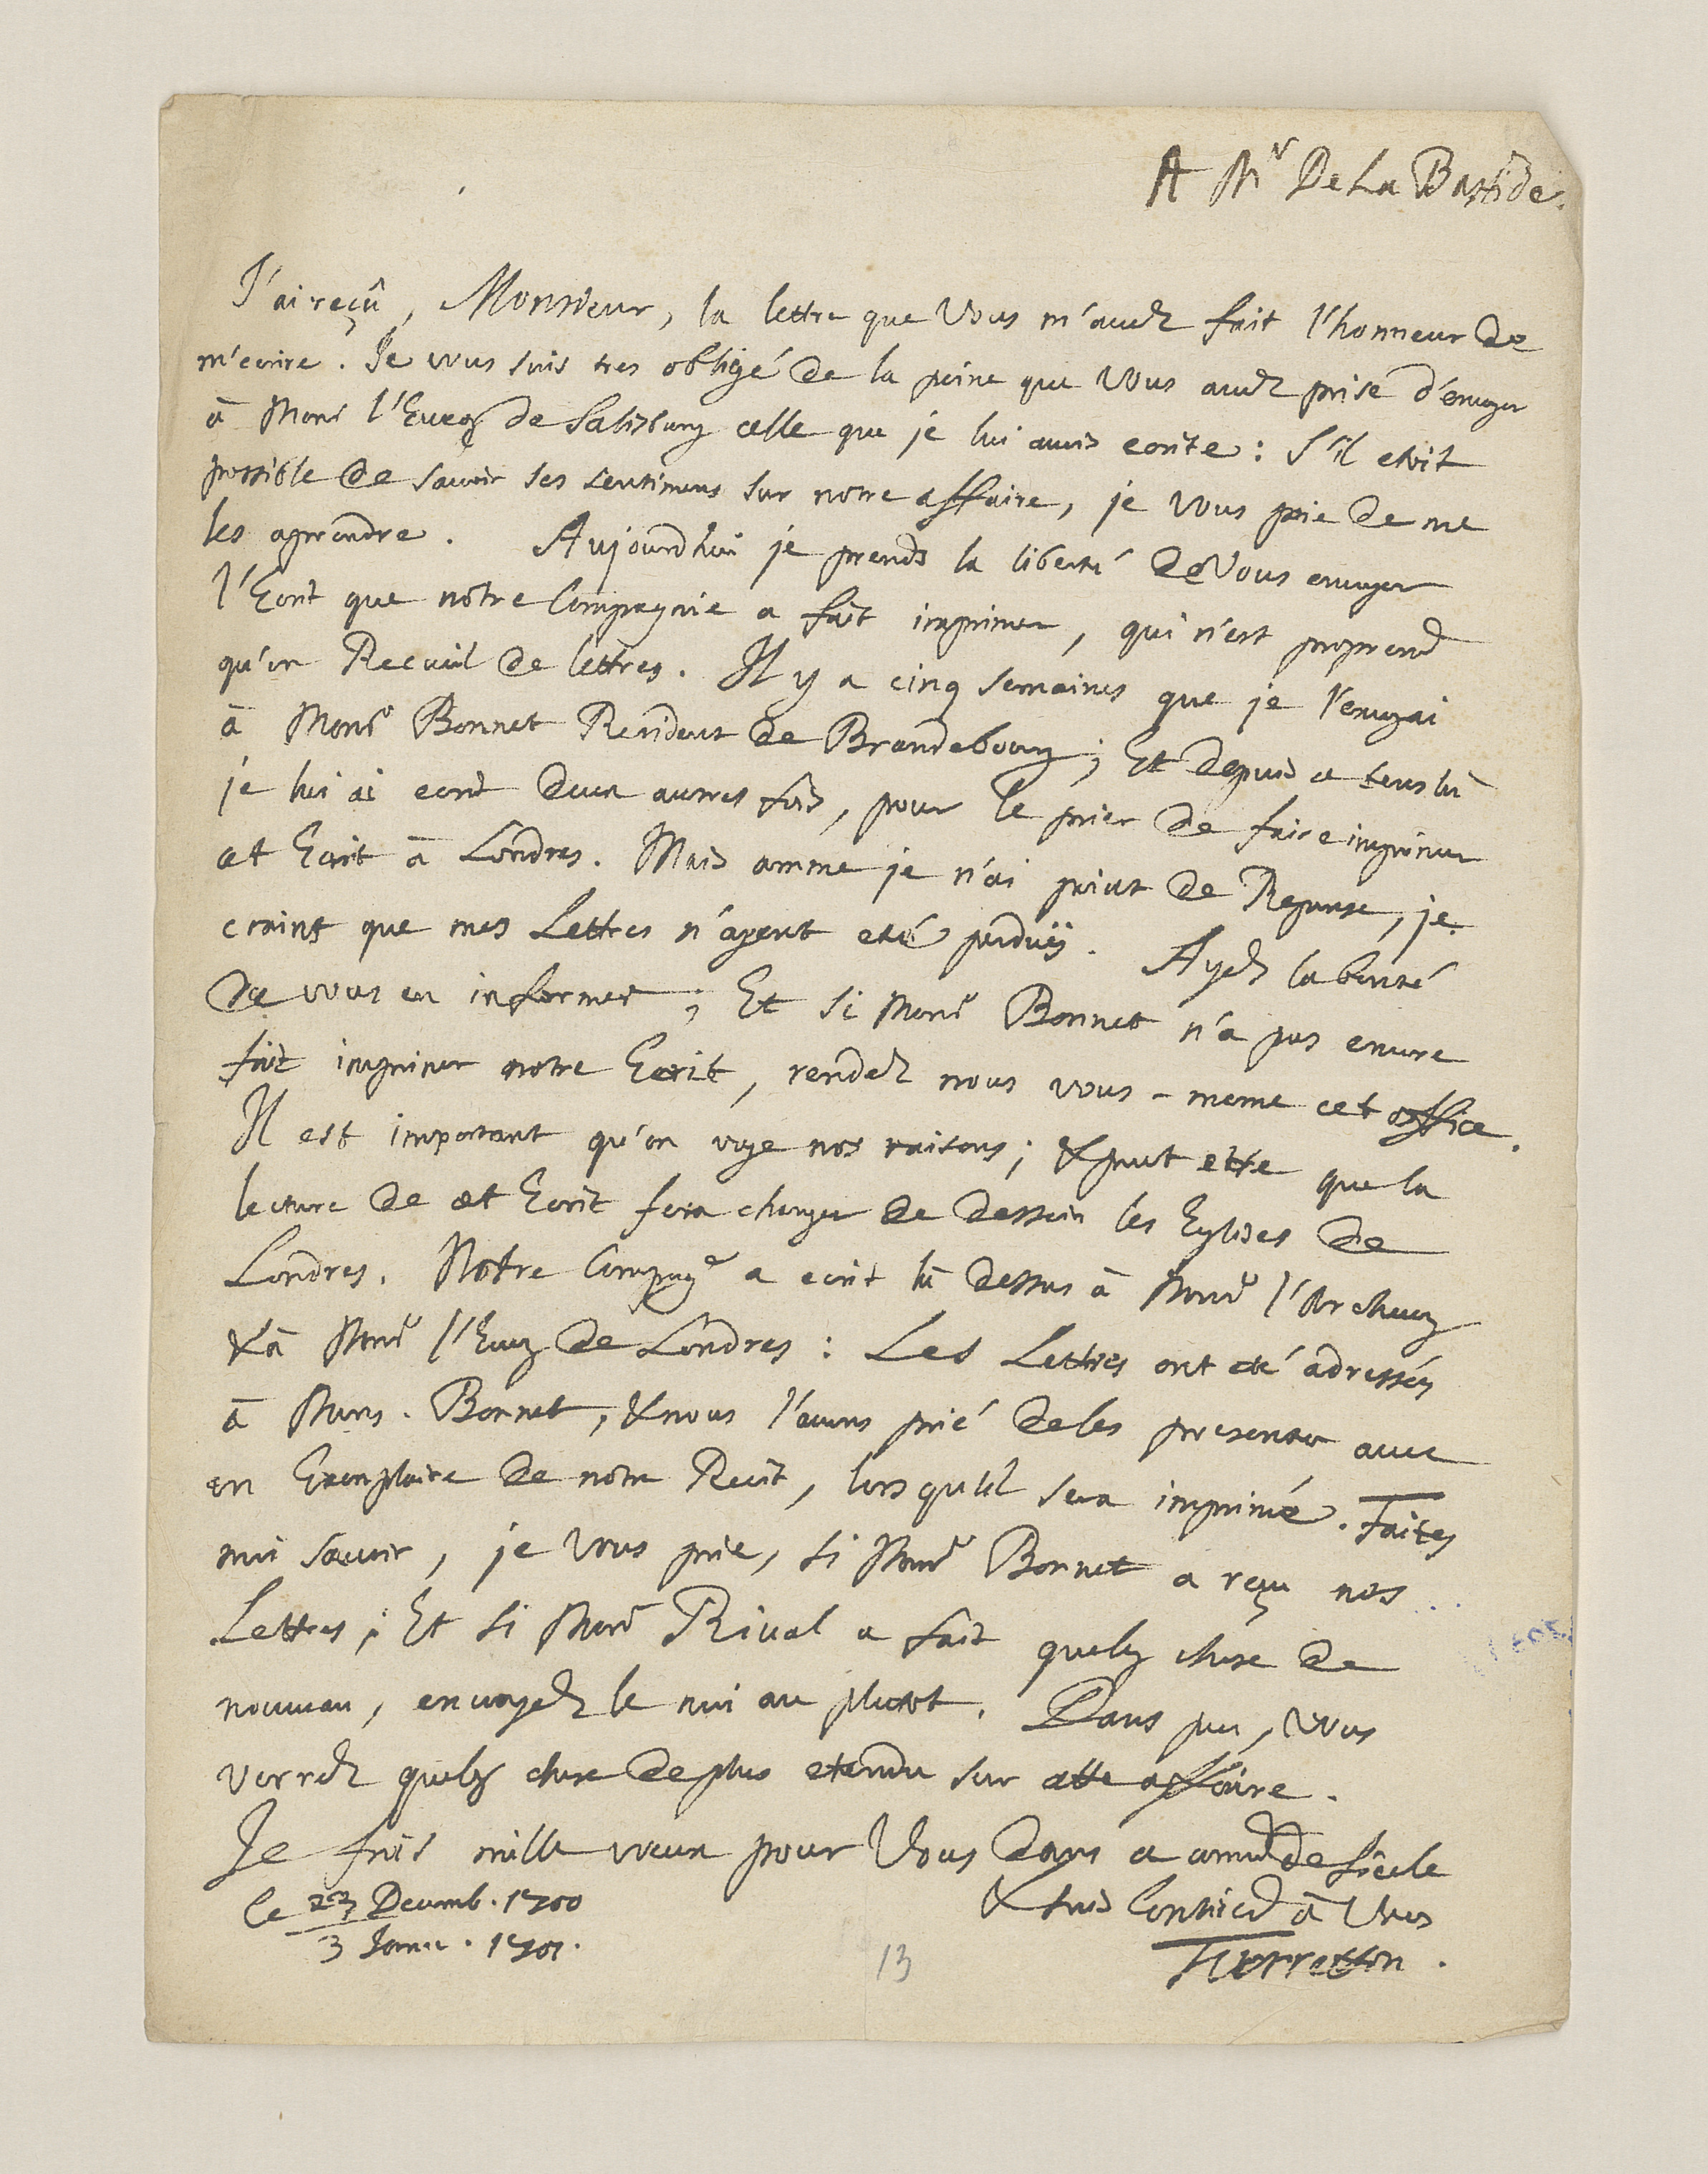 A Mr De La Bastide.
J'ai reçû, Monsieur, la lettre que Vous m'avez fait l'honneur de
m'ecrire. Je vous suis tres obligé de la peine que Vous avez prise d'envoyer
à Monsr l'Eveq de Salisbury celle que je lui avois ecrite: S'il etoit
possible de savoir ses sentimens sur notre affaire, je Vous prie de me
les aprendre. Aujourdhui je prends la liberté de Vous envoyer
l'Ecrit que nôtre Compagnie a fait imprimer, qui n'est propremt
qu'un Recueil de lettres. Il y a cinq semaines que je l'envoyai
à Monsr Bonnet Resident de Brandebourg; Et depuis ce tems là
je lui ai ecrit deux autres fois, pour le prier de faire imprimer
cet Ecrit à Londres. Mais comme je n'ai point de Reponse, je
crains que mes Lettres n'ayent eté perduës. Ayez la bonté
de vous en informer; Et si Monsr Bonnet n'a pas encore
fait imprimer notre Ecrit, rendez nous vous-meme cet office.
Il est important qu'on voye nos raisons; & peut etre que la
lecture de cet Ecrit fera changer de dessein les Eglises de
Londres. Notre Compagе a ecrit là dessus à Monsr l'Archeveq
& à Monsr l'Eveq de Londres: Les Lettres ont eté adressées
à Mons. Bonnet, & nous l'avons prié de les presenter avec
un Exemplaire de notre Recit, lors qu'il sera imprimé. Faites
moi savoir, je Vous prie, si Monsr Bonnet a reçu nos
Lettres; Et si Monsr Rival a fait quelq chose de
nouveau, envoyez le moi au plutot. Dans peu, Vous
verrez quelq chose de plus etendu sur cette affaire.
Je fais mille vœux pour Vous dans ce commt de siecle
& suis Continuelt à Vous
le 23 Decemb. 1700
3 Janv. 1701.
Turretton.
13